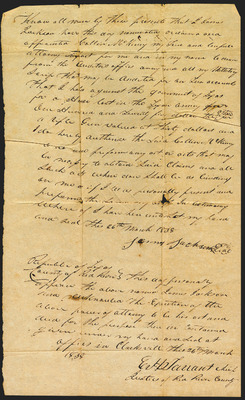 Know all men by these presents that I James
Jackson have this day nominated ordained and
appointed Collin McKinney my true and lawful
attorney for me and in my name to
from the Auditors office any and all my Military
Scrip that may be Audited for me on account
that I has against the government of Texas
for a Horse lost in the Texas Army
One Hundred and Seventy five dollars
a Rifle Gun valued at thirty dollars and
I do hereby authorise the said Collin McKinney
to use all means and acts that may
be necessary to obtain said Claims and all
which acts when done shall be as binding
on me as if I was personally present and
In testimony
Whereof I have here unto set my hand
and seal this 26th March 1838
James Jackson Seal
Republic of Texas
County of Red River This day personally
appeared the above named James Jackson
and acknowledged the Execution of the
above power of attorney to be his act and
deed for the purpose therein contained
given under my hand and seal at
office in Clarksville this 26th March
1838
E H Tarrant Chief
Justice of Red River County